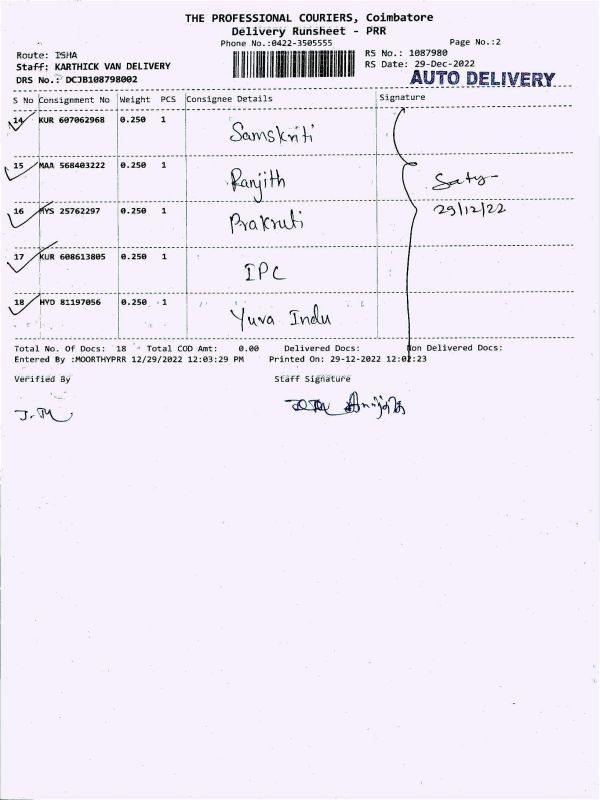 THE PROFESSIONAL COURIERS, Coimbatore
Delivery Runsheet - PRR
Phone No.:0422-3505555
Page No.:2
Route: ISHA
RS No.: 1087980
Staff: KARTHICK VAN DELIVERY
RS Date: 29-Dec-2022
DRS No.: DCJB108798002
AUTO DELIVERY
S No Consignment No Weight PCS Consignee Details Signature
14 KUR 607062968 0.250 1 Samskriti
15 MAA 568403222 0.250 1 Ranjith
16 MYS 25762297 0.250 1 Prakruti
29/12/22
17 KUR 608613805 0.250 1 IPC
18 HYD 81197056 0.250 1 Yuva Indu
Total No. Of Docs: 18 Total COD Amt: 0.00 Delivered Docs: Non Delivered Docs:
Entered By :MOORTHYPRR 12/29/2022 12:03:29 PM Printed On: 29-12-2022 12:02:23
Verified By Staff Signature